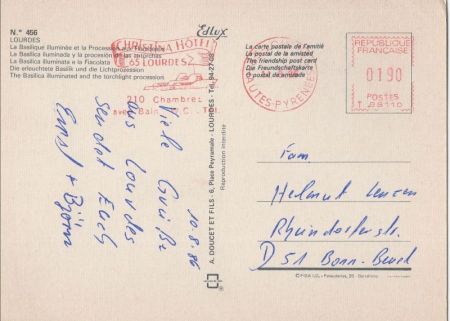 N.° 456
LOURDES
La Basilique illuminée et la Procession aux Flambeaux
La Basilica iluminada y la procesión de las antorchas
La Basilica illuminata e la Fiaccolata
Die erleuchtete Basilik und die Lichtprozession
The Basilica illuminated and the torchlight procession
HOTEL
65 LOURDES
210 Chambres
Edlux
La carte postale de l'amitié
La postal de la amistad
The friendship post card
Die Freundschaftskarte
O postal da amizade
HAUTES-PYRENEES
REPUBLIQUE
FRANÇAISE
0190
POSTES
A. DOUCET ET FILS - 6, Place Peyramale - LOURDES - Tél. 94-27-08
Reproduction interdite
10.8.86
Viele Grüße
aus Lourdes
sendet Euch
Ernst + Björn
Fam.
Helmut
D 51 Bonn-Beuel